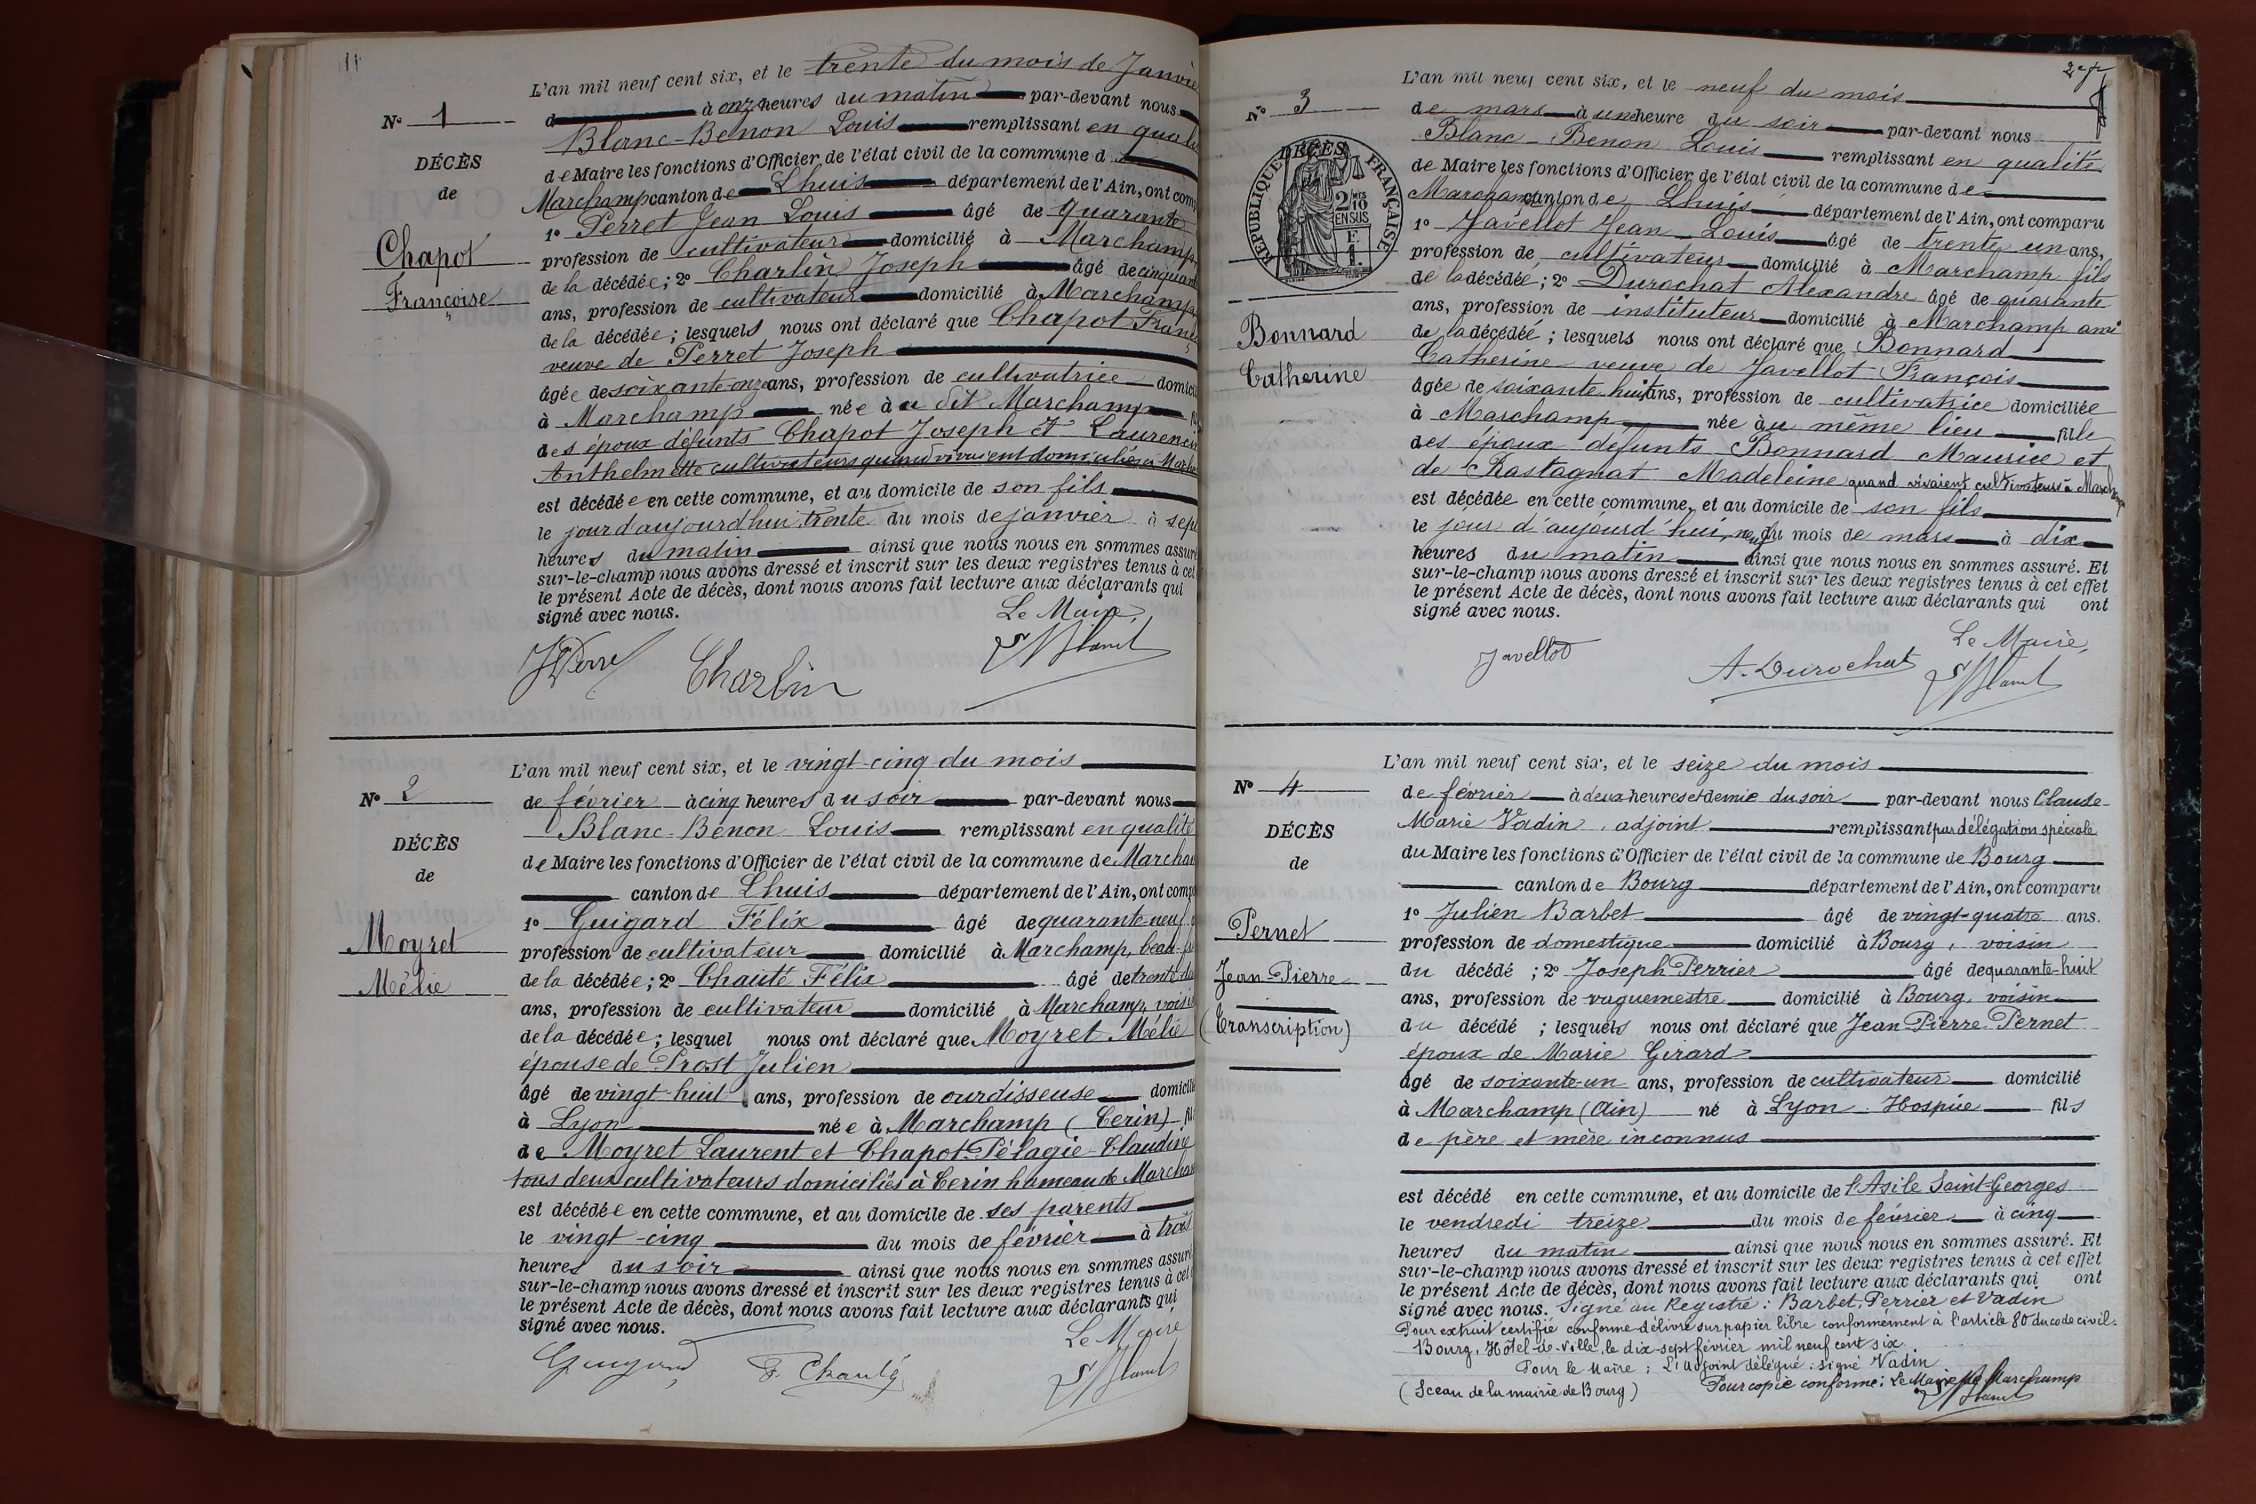 L'an mil neuf cent six, et le trente du mois de Janvie
N° 1
d à onze heures du matin par-devant nous
Blanc-Benon Louis remplissant en quali
DÉCÈS
de Maire les fonctions d'Officier de l'état civil de la commune d
de
Marchamp canton de Lhuis département de l'Ain, ont comp
1° Perret Jean Louis âgé de quarante
Chapot
profession de cultivateur domicilié à Marchamp
Françoise
de la décédée; 2° Charlin Joseph âgé de cinquant
ans, profession de cultivateur domicilié à Marchamp
de la décédée; lesquels nous ont déclaré que Chapot Franç
veuve de Perret Joseph
âgée de soixante-onze ans, profession de cultivatrice domici
à Marchamp née à au dit Marchamp
des époux défunts Chapot Joseph et Laurencin
Anthelmette cultivateurs quand vivaient domiciliés à March
est décédée en cette commune, et au domicile de son fils
le jour d'aujourd'hui, trente du mois de janvier à sept
heures du matin ainsi que nous nous en sommes assuré
sur-le-champ nous avons dressé et inscrit sur les deux registres tenus à cet
le présent Acte de décès, dont nous avons fait lecture aux déclarants qui
signé avec nous.
Le Maire,
JPerret Charlin LBlanc
L'an mil neuf cent six, et le vingt-cinq du mois
N° 2
de février à cinq heures du soir par-devant nous
Blanc-Benon Louis remplissant en qualité
DÉCÈS
de Maire les fonctions d'Officier de l'état civil de la commune de Marcham
de
canton de Lhuis département de l'Ain, ont comp
1° Guigard Félix âgé de quarante neuf
Moyret
profession de cultivateur domicilié à Marchamp, beau-
Mélie
de la décédée; 2° Chauté Félix âgé de trente
ans, profession de cultivateur domicilié à Marchamp, voisi
de la décédée; lesquel nous ont déclaré que Moyret Mélie
épouse de Prost Julien
âgé de vingt-huit ans, profession de ourdisseuse domicili
à Lyon née à Marchamp (Cerin) fil
de Moyret Laurent et Chapot Pélagie-Claudine
tous deux cultivateurs domiciliés à Cerin hameau de Marcham
est décédée en cette commune, et au domicile de ses parents
le vingt-cinq du mois de février à trois
heures du soir ainsi que nous nous en sommes assuré
sur-le-champ nous avons dressé et inscrit sur les deux registres tenus à cet
le présent Acte de décès, dont nous avons fait lecture aux déclarants qui
signé avec nous.
Le Maire
Guigard F. Chauté LBlanc
L'an mil neuf cent six, et le neuf du mois
N° 3
de mars à une heure du soir par-devant nous
Blanc-Benon Louis remplissant en qualité
DÉCÈS
RÉPUBLIQUE FRANÇAISE
2/10 EN SUS
de Maire les fonctions d'Officier de l'état civil de la commune de
Marchamp canton de Lhuis département de l'Ain, ont comparu
1° Javellot Jean-Louis âgé de trente un ans,
profession de cultivateur domicilié à Marchamp fils
de la décédée; 2° Durochat Alexandre âgé de quarante
ans, profession de instituteur domicilié à Marchamp ami
Bonnard
de la décédée; lesquels nous ont déclaré que Bonnard
Catherine
Catherine veuve de Javellot François
âgée de soixante-huit ans, profession de cultivatrice domiciliée
à Marchamp née à au même lieu fille
des époux défunts Bonnard Maurice et
de Rastagnat Madeleine quand vivaient cultivateurs à Marchamp
est décédée en cette commune, et au domicile de son fils
le jour d'aujourd'hui, neuf du mois de mars à dix
heures du matin ainsi que nous nous en sommes assuré. Et
sur-le-champ nous avons dressé et inscrit sur les deux registres tenus à cet effet
le présent Acte de décès, dont nous avons fait lecture aux déclarants qui ont
signé avec nous.
Le Maire,
Javellot A. Durochat LBlanc
L'an mil neuf cent six, et le seize du mois
N° 4
de février à deux heures et demie du soir par-devant nous Claude-
Marie Vadin, adjoint remplissant par délégation spéciale
DÉCÈS
du Maire les fonctions d'Officier de l'état civil de la commune de Bourg
de
canton de Bourg département de l'Ain, ont comparu
1° Julien Barbet âgé de vingt-quatre ans.
Pernet
profession de domestique domicilié à Bourg, voisin
Jean-Pierre
du décédé; 2° Joseph Perrier âgé de quarante-huit
ans, profession de vaguemestre domicilié à Bourg, voisin
(Transcription)
du décédé; lesquels nous ont déclaré que Jean-Pierre Pernet
époux de Marie Girard
âgé de soixante-un ans, profession de cultivateur domicilié
à Marchamp (Ain) né à Lyon. Hospice fils
de père et mère inconnus
est décédé en cette commune, et au domicile de l'Asile Saint-Georges
le vendredi treize du mois de février à cinq
heures du matin ainsi que nous nous en sommes assuré. Et
sur-le-champ nous avons dressé et inscrit sur les deux registres tenus à cet effet
le présent Acte de décès, dont nous avons fait lecture aux déclarants qui ont
signé avec nous. Signé au Registre: Barbet, Perrier et Vadin
Pour extrait certifié conforme délivré sur papier libre conformément à l'article 80 du code civil.
Bourg, Hôtel-de-Ville, le dix-sept février mil neuf cent six
Pour le Maire: L'Adjoint délégué: signé Vadin
(Sceau de la mairie de Bourg) Pour copie conforme: Le Maire de Marchamp
LBlanc